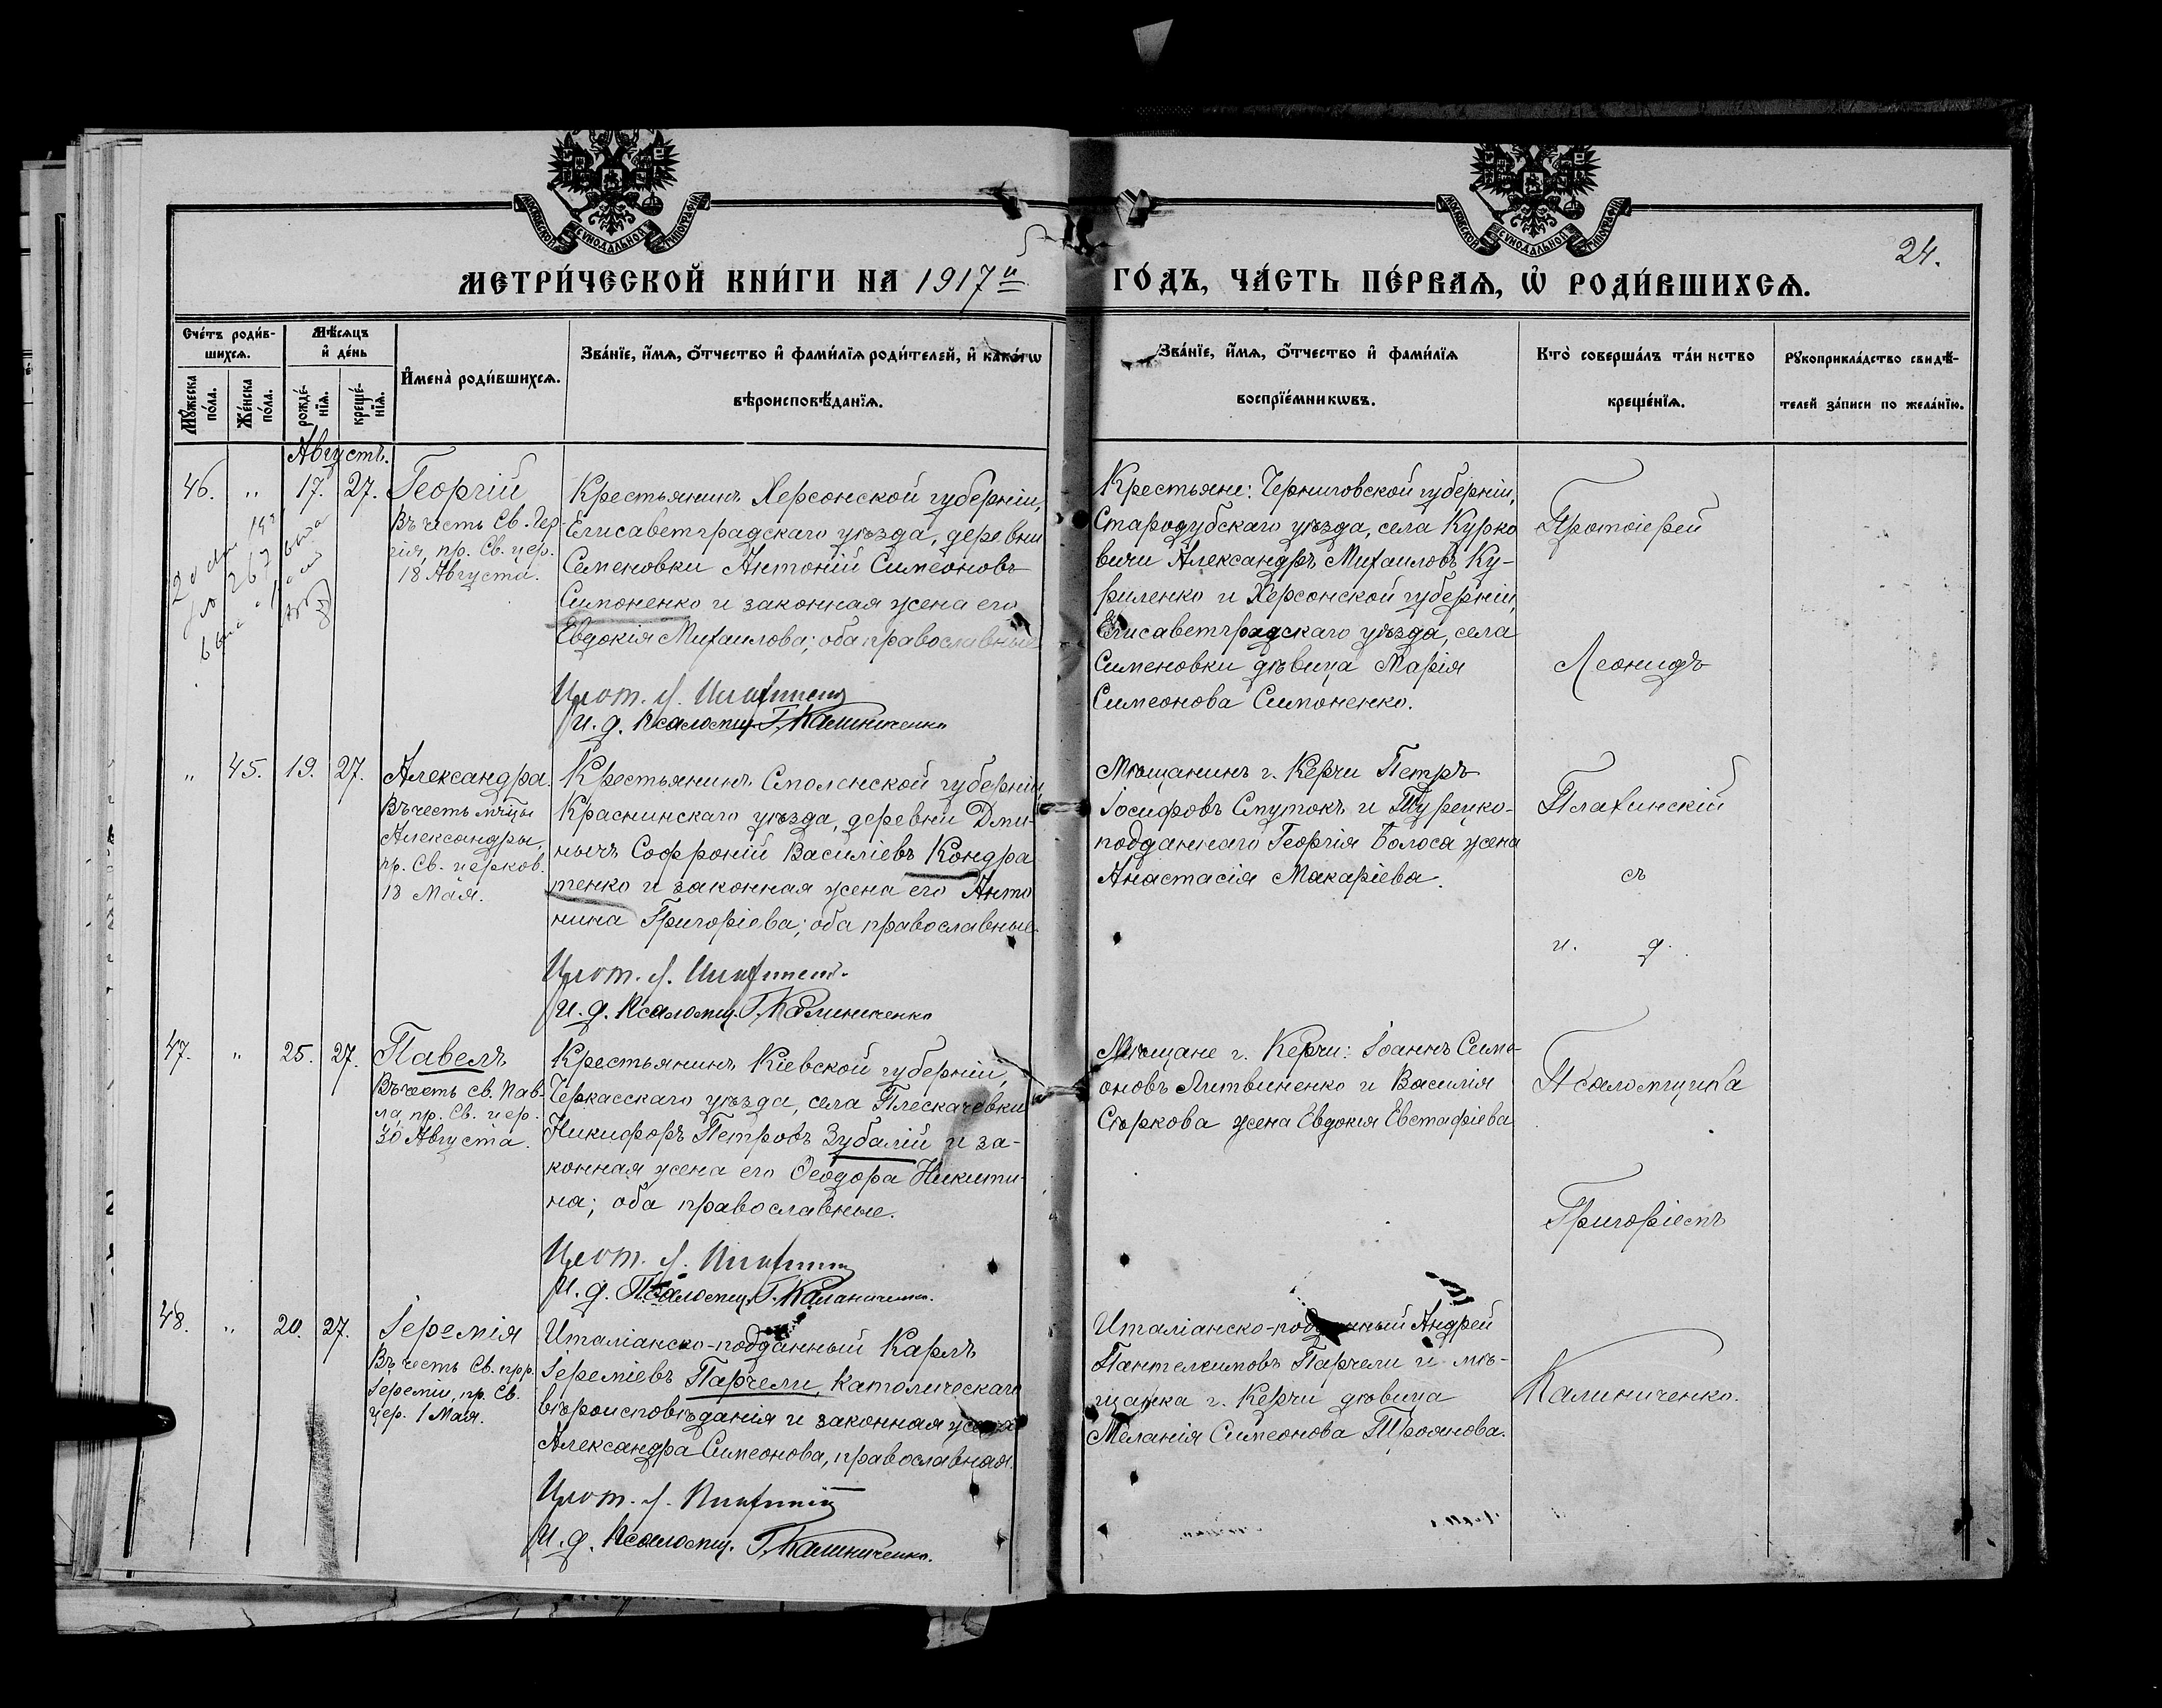 МОСКОВСКОЙ СУНОДАЛЬНОЙ ТИПОГРАФІИ
МОСКОВСКОЙ СУНОДАЛЬНОЙ ТИПОГРАФІИ
24.
МЕТРИ́ЧЕСКОЙ КНИ́ГИ НА 1917й
ГО́ДЪ, ЧА́СТЬ ПЕ́РВАѦ, Ѡ҆ РОДИ́ВШИХСѦ.
Сче́тъ роди́в-
шихсѧ.
Мꙋ́жеска по́ла.
Же́нска по́ла.
Мѣ́сѧцъ
и҆ де́нь
рожде́-
нїѧ.
креще́-
нїѧ.
И҆мена̀ роди́вшихсѧ.
Зва́нїе, и҆́мѧ, ѻ҆́тчество и҆ фами́лїѧ роди́телей, и҆ како́гѡ
вѣроисповѣ́данїѧ.
Зва́нїе, и҆́мѧ, ѻ҆́тчество и҆ фами́лїѧ
воспрїе́мникѡвъ.
Кто̀ соверша́лъ та́инство
креще́нїѧ.
Рꙋкоприкла́дство свидѣ́-
телей за́писи по жела́нїю.
Августъ.
46. " 17. 27. Георгій
Въ честь Св. Геор-
гія, пр. Св. цер.
18 Августа.
Крестьянинъ Херсонской губерніи,
Елисаветградскаго уѣзда, деревни
Семеновки Антоній Симеоновъ
Симоненко и законная жена его
Евдокія Михаилова; оба православные
Прот. Л. Плахинскій
И. д. Псаломщ. Г. Калиниченко
Крестьяне: Черниговской губерніи,
Стародубскаго уѣзда, села Курко
вичи Александръ Михаиловъ Ку-
риленко и Херсонской губерніи,
Елисаветградскаго уѣзда, села
Сименовки дѣвица Марія
Симеонова Симоненко.
Протоіерей
Леонидъ
" 45. 19. 27. Александра.
Въ честь мчцы
Александры,
пр. Св. церков.
18 Мая.
Крестьянинъ Смоленской губерніи,
Краснинскаго уѣзда, деревни Дми-
ничъ Софроній Василіевъ Кондра
тенко и законная жена его Анто
нина Григоріева; оба православные.
Прот. Л. Плахинскій
И. д. Псаломщ. Г. Калиниченко
Мѣщанинъ г. Керчи Петръ
Іосифовъ Смутокъ и Турецко-
подданнаго Георгія Болоса жена
Анастасія Макаріева.
Плахинскій
съ
и. д.
47. " 25. 27. Павелъ
Въ честь св. Пав-
ла, пр. Св. цер.
30 Августа.
Крестьянинъ Кіевской губерніи,
Черкасскаго уѣзда, села Плескачевки
Никифоръ Петровъ Зубалій и за-
конная жена его Ѳеодора Никити-
на; оба православные.
Прот. Л. Плахинскій
И. д. Псаломщ. Г. Калиниченко.
Мѣщане г. Керчи: Іоаннъ Симе-
оновъ Литвиненко и Василія
Сѣркова жена Евдокія Евстафіева
Псаломщика
Григоріемъ
48. " 20. 27. Іеремія
Въ честь Св. прр.
Іереміи, пр. Св.
цер. 1 Мая.
Италіанско-подданный Карлъ
Іереміевъ Парчели, католическаго
вѣроисповѣданія и законная жена
Александра Симеонова, православная.
Прот. Л. Плахинскій
И. д. Псаломщ. Г. Калиниченко.
Италіанско-подданный Андрей
Пантелеимовъ Парчели и мѣ-
щанка г. Керчи дѣвица
Меланія Симеонова Троянова.
Калиниченко.